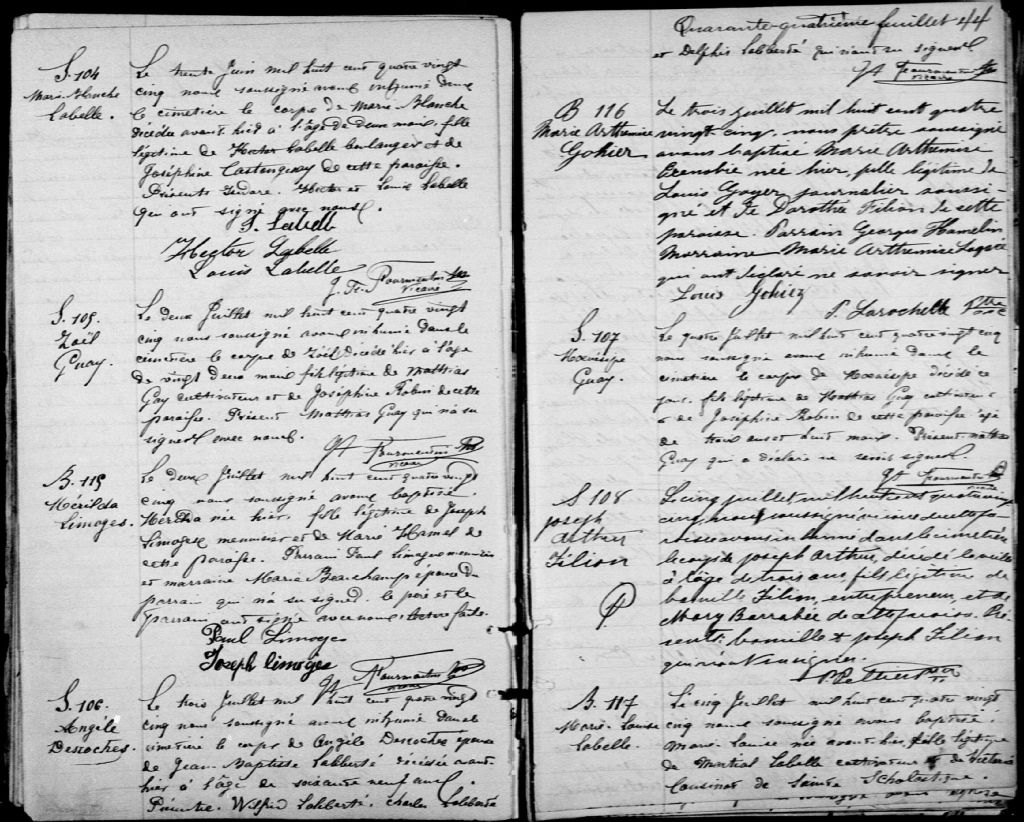 S. 104
Marie Blanche
Labelle.
Le trente Juin mil huit cent quatre vingt
cinq nous soussigné avons inhumé dans
le cimetière le corps de Marie Blanche
décédée avant hier à l'âge de deux mois, fille
légitime de Hector Labelle boulanger et de
Joséphine Castonguay de cette paroisse.
Présents Hector et Louis Labelle
qui ont signé avec nous.
Labelle
Hector Labelle
Louis Labelle
vicaire
S. 105.
Zoël
Guay.
Le deux Juillet mil huit cent quatre vingt
cinq nous soussigné avons inhumé dans le
cimetière le corps de Zoël décédé hier à l'age
de vingt deux mois fils légitime de Matthias
Guy cultivateur et de Joséphine Robin de cette
paroisse. Présent Mathias Guay qui n'a su
signer avec nous.
vicaire
B. 115
Mérilda
Limoges.
Le deux Juillet mil huit cent quatre vingt
cinq nous soussigné avons baptisé
née hier, fille légitime de Joseph
Limoges meunier et de Marie Hamel de
cette paroisse. Parrain Paul Limoges
et marraine Marie Beauchamp épouse du
parrain qui n'a su signer. le père et le
parrain ont signé avec nous. faite.
Paul Limoges
Joseph limoges
S. 106.
Angèle
Desroches.
Le trois Juillet mil huit cent quatre vingt
cinq nous soussigné avons inhumé dans le
cimetière le corps de Angèle Desroches épouse
de Jean Baptiste Labberté décédée avant
hier à l'âge de soixante neuf ans.
Wilfrid Labberté. Charles Labberté
Quarante-quatrième feuillet 44
et Delphis Labberté qui n'ont su signer.
vicaire
B 116
Marie Arthemise
Gohier
Le trois juillet mil huit cent quatre
vingt cinq, nous prêtre soussigné
avons baptisé Marie Arthemise
née hier, fille légitime de
Louis Goyer journalier soussi-
gné et de Dorothée Filion de cette
paroisse. Parrain Georges Hamelin
Marraine Marie Arthemise
qui ont déclaré ne savoir signer
Louis Gohier
Larochelle Ptre
S. 107
Guay.
Le quatre Juillet mil huit cent quatre vingt cinq
nous soussigné avons inhumé dans le
cimetière le corps de décédé ce
jour. fils légitime de Matthias Guy cultivateur
et de Joséphine Robin de cette paroisse agé
de trois ans et huit mois. Présent Mathias
Guay qui a déclaré ne savoir signer.
S 108
Joseph
Arthur
Filion
Le cinq juillet mil huit cent quatre vingt
cinq, nous soussigné vicaire de cette pa-
roisse avons inhumé dans le cimetière
le corps de Joseph Arthur, décédé la veille
à l'âge de trois ans fils légitime de
Camille Filion, entrepreneur, et de
Mary Barrabée de cette paroisse. Pré-
sents Camille & Joseph Filion
qui n'ont su signer.
B. 117
Marie. Louise
Labelle.
Le cinq Juillet mil huit cent quatre vingt
cinq nous soussigné avons baptisé
Marie. Louise née avant hier, fille légitime
de Martial Labelle cultivateur et de Victoria
Lousinat de Sainte Scholastique.